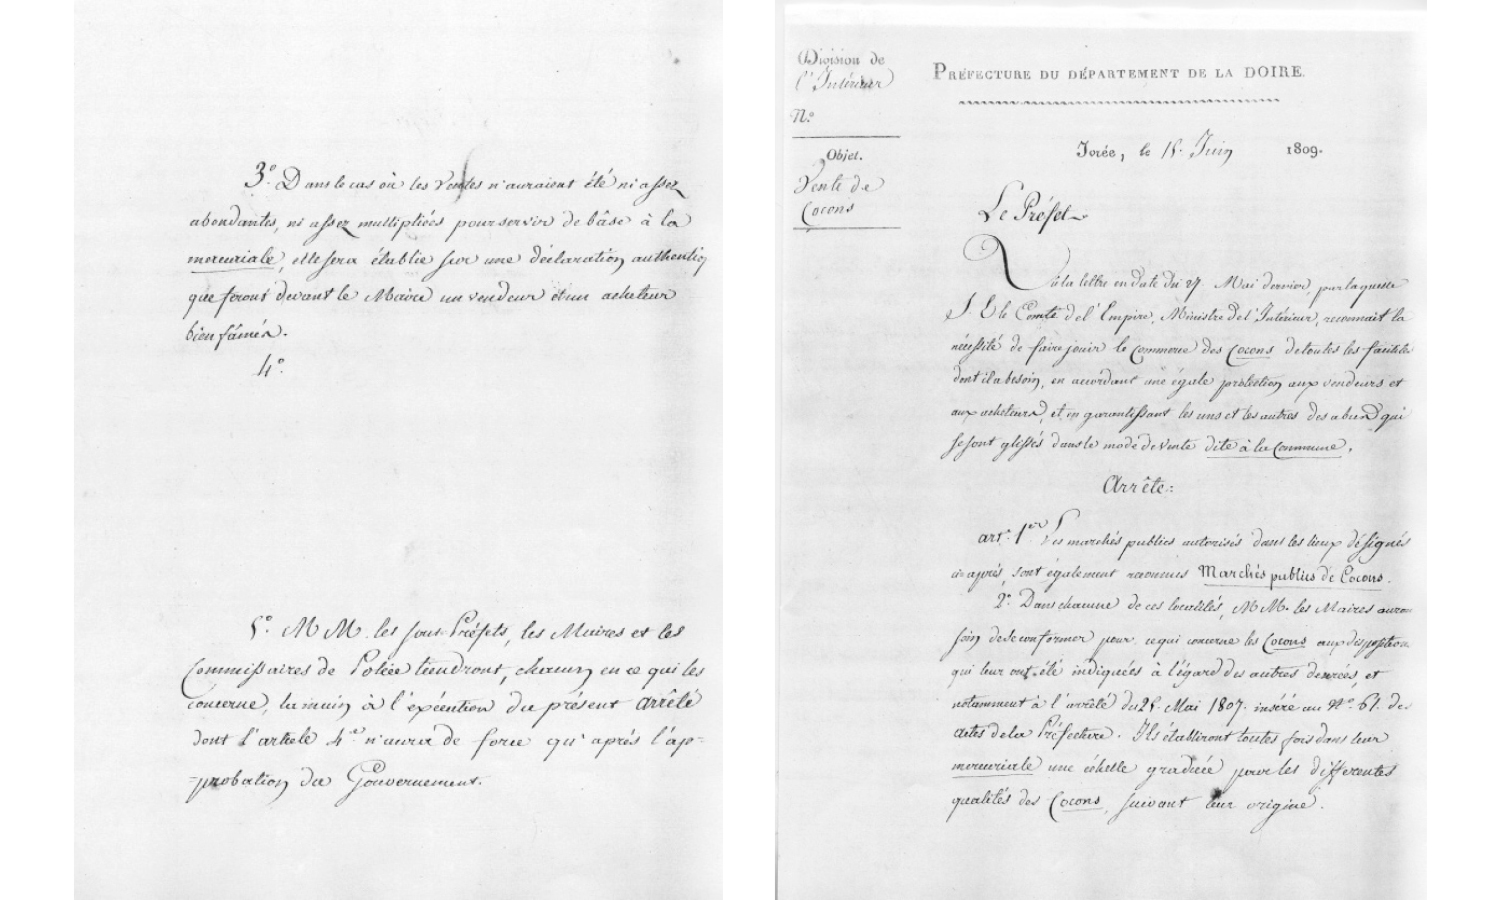 3.° Dans le cas où les Ventes n'auraient été ni assez
abondantes, ni assez multipliées pour servir de bâse à la
mercuriale, elle sera établie sur une déclaration authentiq
que feront devant le Maire un vendeur et un acheteur
bien famés.
4.°
5.° MM. les Sous-Préfets, les Maires et les
Commissaires de Police tiendront, chacun en ce qui les
concerne, la main à l'exécution du présent arrêté
dont l'article 4.e n'aura de force qu'après l'ap=
=probation du Gouvernement.
Division de
l'Intérieur
N.°
Objet.
Vente de
Cocons
PRÉFECTURE DU DÉPARTEMENT DE LA DOIRE.
Ivrée, le 15. Juin 1809.
Le Préfet
Vu la lettre en date du 27. Mai dernier, par laquelle
S. E. le Comte de l'Empire, Ministre de l'Intérieur, reconnait la
nécessité de faire jouir le commerce des Cocons de toutes les facilités
dont il a besoin, en accordant une égale protection aux vendeurs et
aux acheteurs, et en garantissant les uns et les autres des abus qui
se sont glissés dans le mode de vente dite à la Commune.
Arrête:
art. 1.er Les marchés publics autorisés dans les lieux désignés
ci-après, sont également reconnus Marchés publics de Cocons.
2.° Dans chacune de ces localités, MM. les Maires auron
soin de se conformer pour ce qui concerne les Cocons aux disposition
qui leur ont été indiquées à l'égard des autres denrées, et
notamment à l'arrêté du 25. Mai 1807. inséré au N.° 61. des
actes de la Préfecture. Ils établiront toutes fois dans leur
mercuriale une échelle graduée pour les differentes
qualités des Cocons, suivant leur origine.